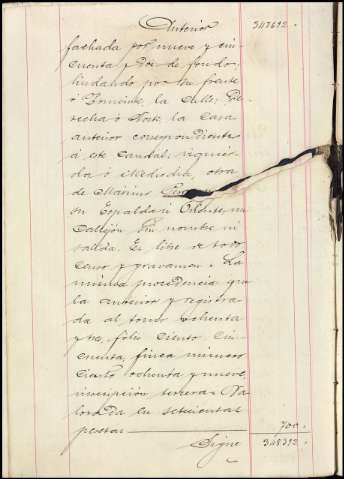 Anterior 347692.
fachada por nueve y cin-
cuenta y dos de fondo,
lindando por su frente
ó Poniente, la Calle; De-
recha ó Norte, la Casa
anterior correspondiente
á este caudal; izquier-
da ó Mediodia, otra
de Mariano
su Espalda ú Oriente, un
Callejón sin nombre ni
salida. Es libre de todo
censo y gravamen. La
misma procedencia que
la anterior y registra-
da al tomo ochenta
y tres, folio ciento cin-
cuenta, finca numero
ciento ochenta y nueve,
inscripción tercera. Va-
lorada en setecientas
pesetas 700.
Sigue 348392.